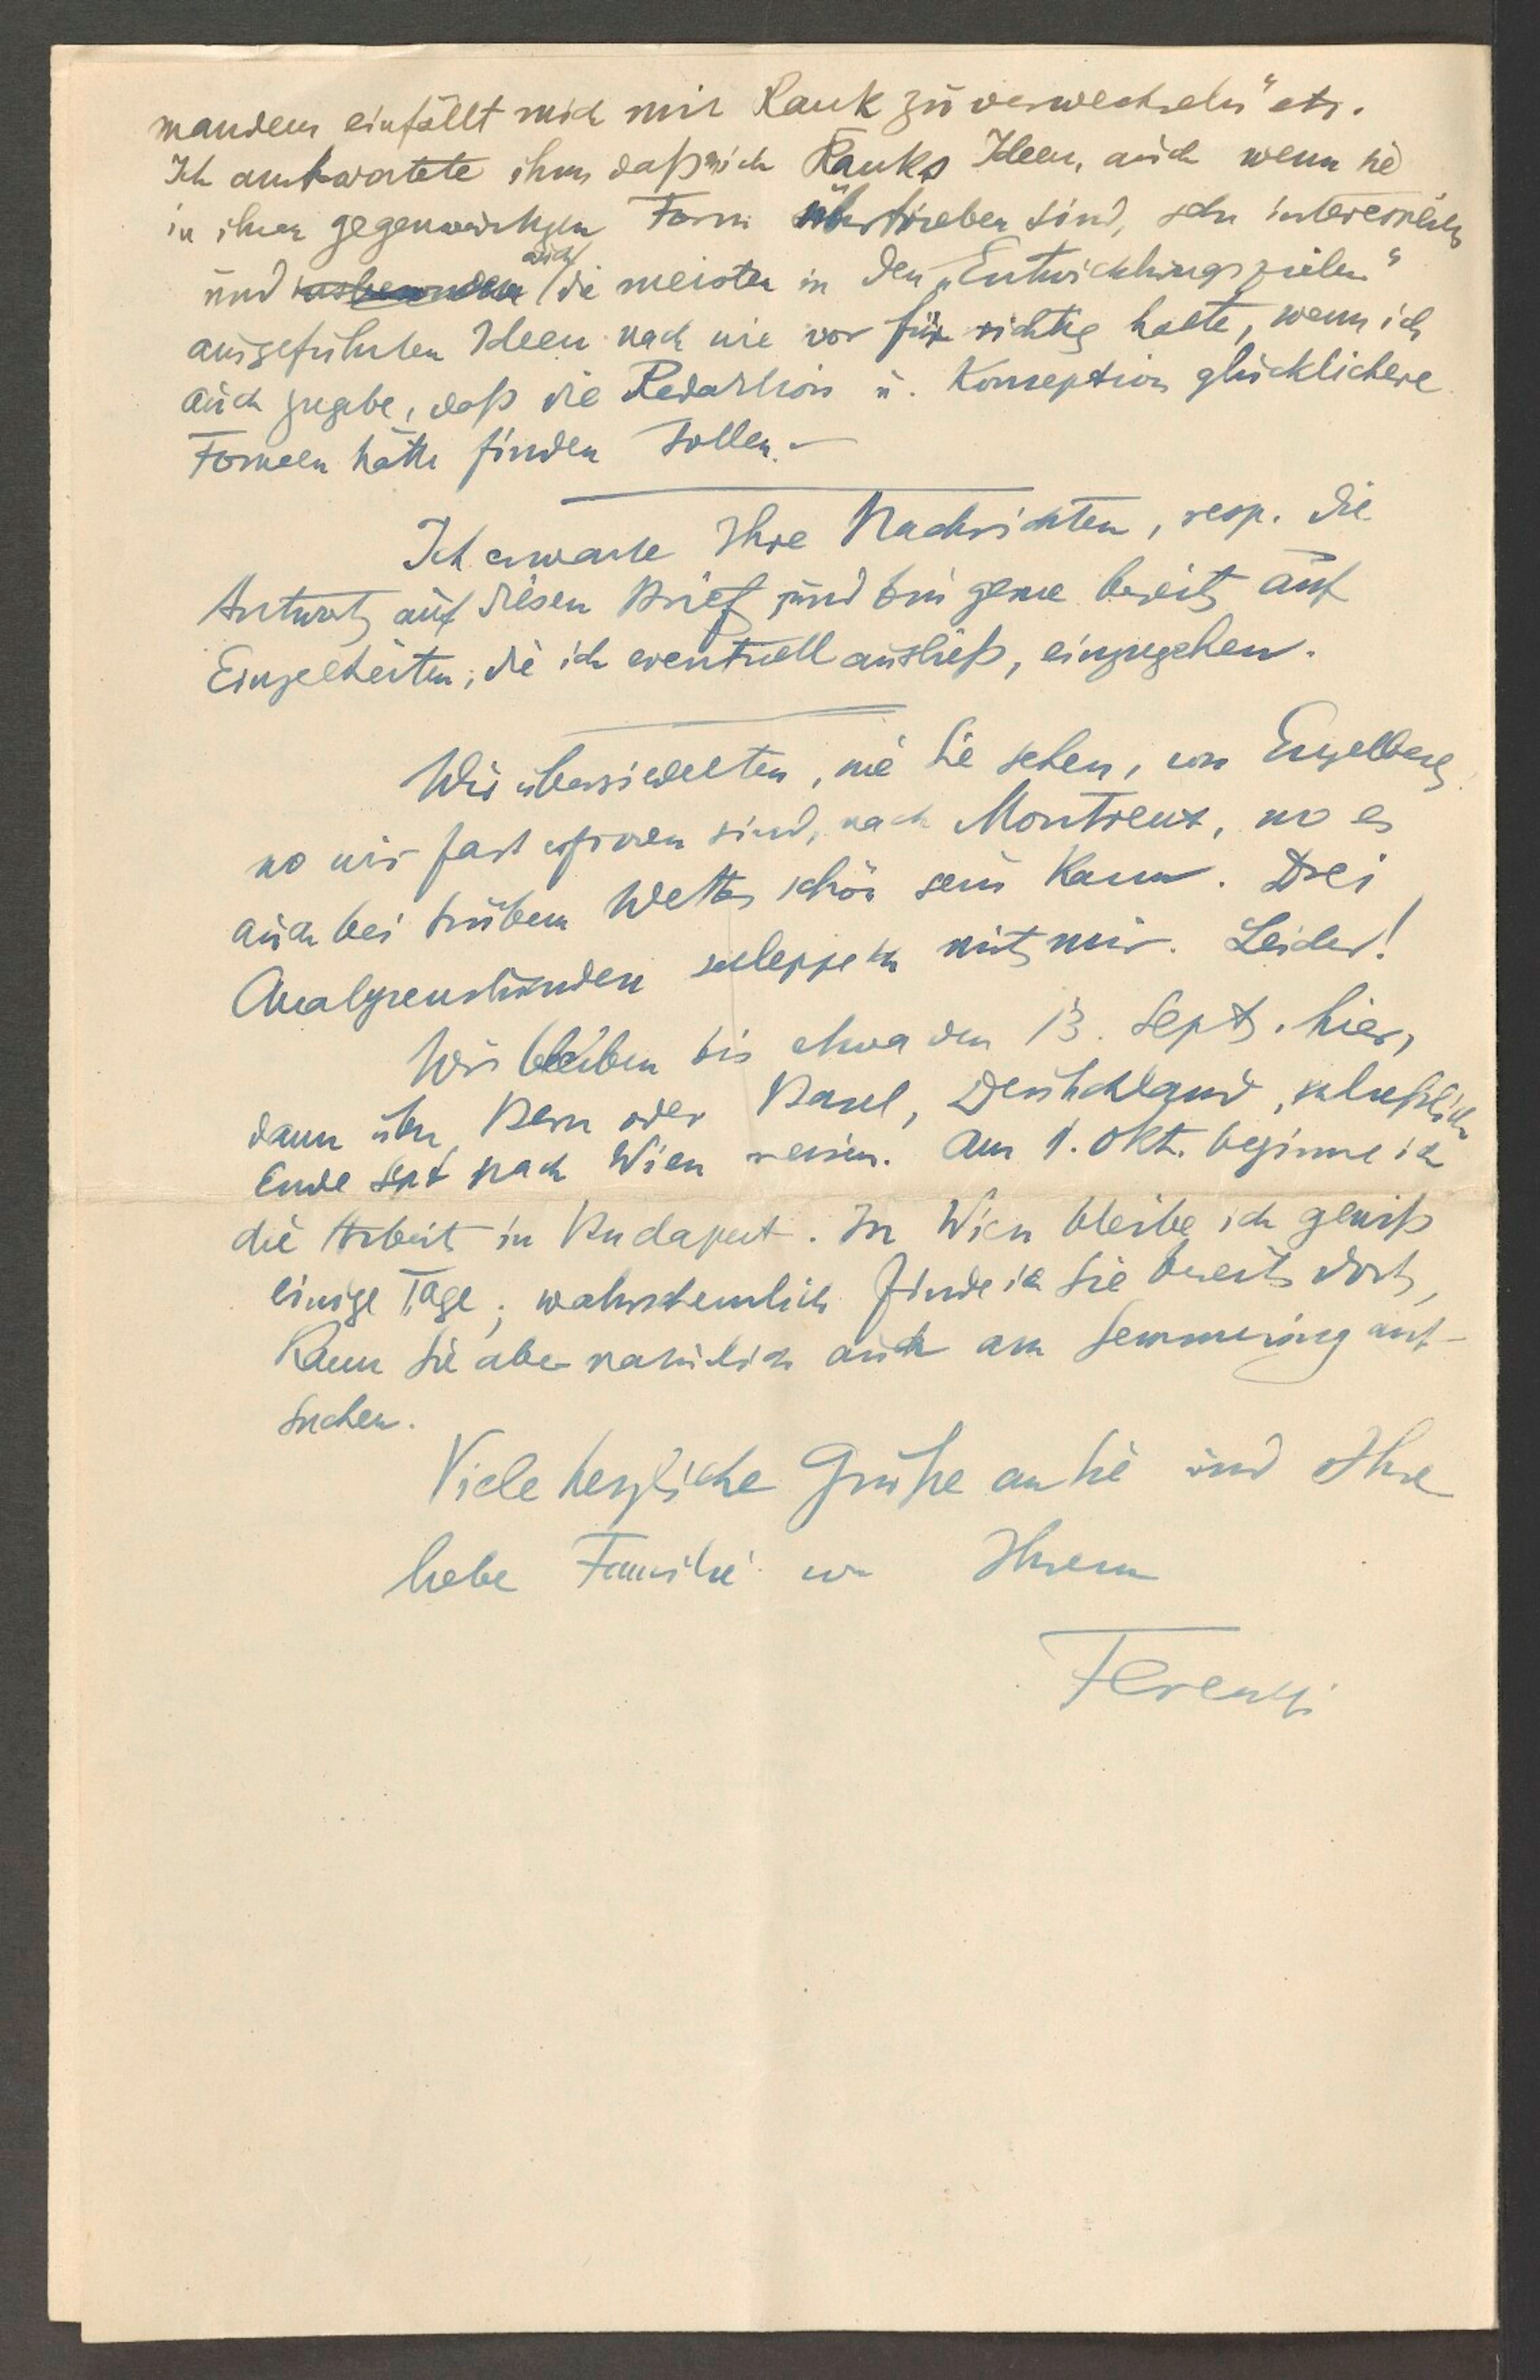 mandem einfällt mich mit Rank zu verwechseln" etc.
Ich antwortete ihm daß ich Ranks Ideen, auch wenn sie
in ihrer gegenwärtigen Form übertrieben sind, sehr interessieren
und auch die meisten in den „Entwicklungszielen"
ausgeführten Ideen nach wie vor für richtig halte, wenn ich
auch zugebe, daß die Redaktion u. Konzeption glücklichere
Formen hätte finden sollen. –
Ich erwarte Ihre Nachrichten, resp. die
Antwort auf diesen Brief und bin gerne bereit, auf
Einzelheiten, die ich eventuell ausließ, einzugehen.
Wir übersiedelten, wie Sie sehen, von Engelberg,
wo wir fast erfroren sind, nach Montreux, wo es
auch bei trübem Wetter schön sein kann. Drei
Analysenstunden schleppe ich mit mir. Leider!
Wir bleiben bis etwa den 13. Sept. hier,
dann über Bern oder Basel, Deutschland, schließlich
Ende Sept nach Wien reisen. Am 1. Okt. beginne ich
die Arbeit in Budapest. In Wien bleibe ich gewiß
einige Tage; wahrscheinlich finde ich Sie bereits dort,
kann Sie aber natürlich auch am Semmering auf-
suchen.
Viele herzliche Grüße an Sie und Ihre
liebe Familie von Ihrem
Ferenczi